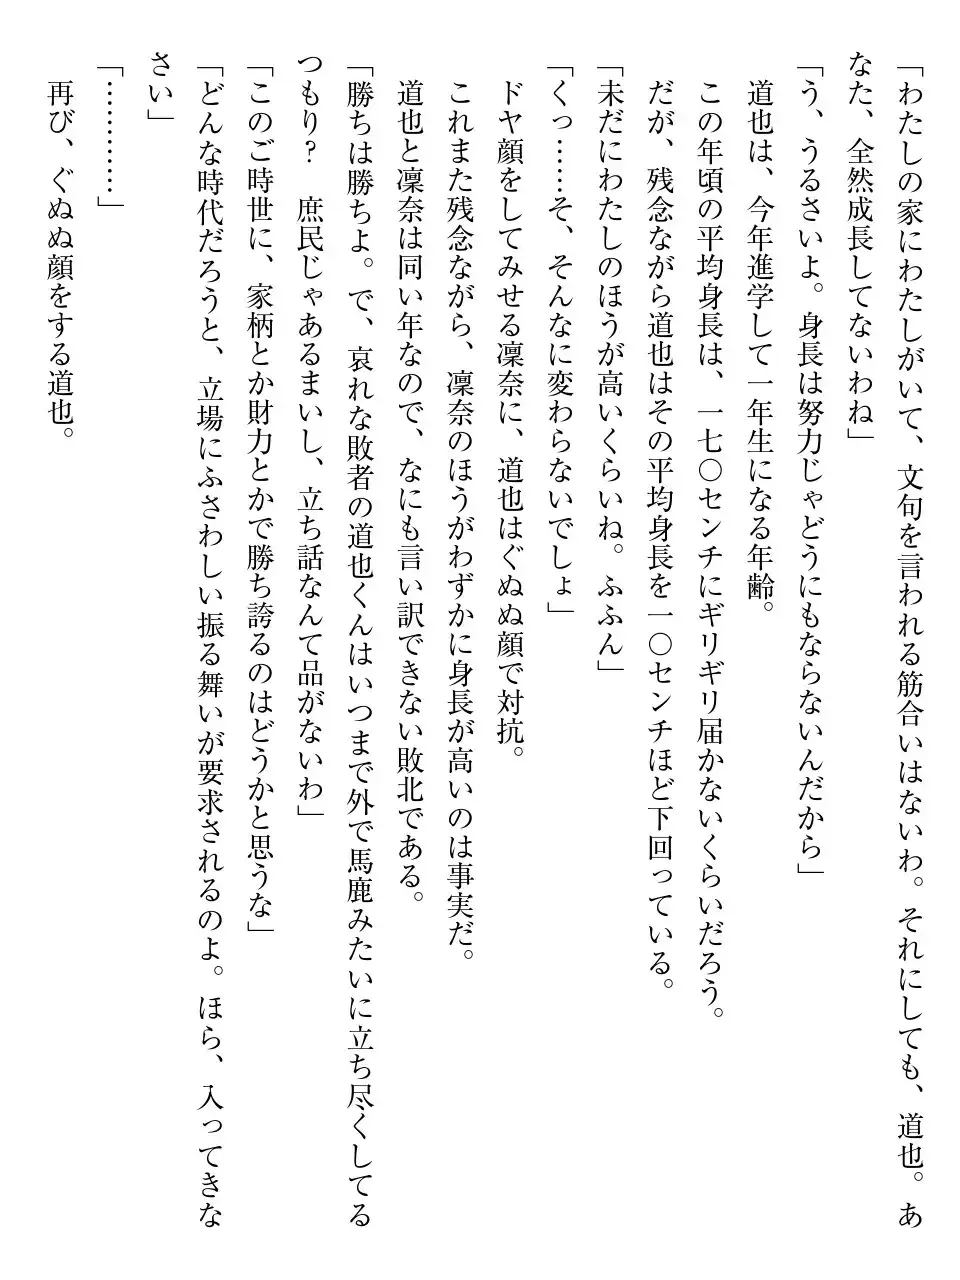 「わたしの家にわたしがいて、文句を言われる筋合いはないわ。それにしても、道也。あ
なた、全然成長してないわね」
「う、うるさいよ。身長は努力じゃどうにもならないんだから」
　道也は、今年進学して一年生になる年齢。
　この年頃の平均身長は、一七〇センチにギリギリ届かないくらいだろう。
　だが、残念ながら道也はその平均身長を一〇センチほど下回っている。
「未だにわたしのほうが高いくらいね。ふふん」
「くっ……そ、そんなに変わらないでしょ」
　ドヤ顔をしてみせる凜奈に、道也はぐぬぬ顔で対抗。
　これまた残念ながら、凜奈のほうがわずかに身長が高いのは事実だ。
　道也と凜奈は同い年なので、なにも言い訳できない敗北である。
「勝ちは勝ちよ。で、哀れな敗者の道也くんはいつまで外で馬鹿みたいに立ち尽くしてる
つもり？　庶民じゃあるまいし、立ち話なんて品がないわ」
「このご時世に、家柄とか財力とかで勝ち誇るのはどうかと思うな」
「どんな時代だろうと、立場にふさわしい振る舞いが要求されるのよ。ほら、入ってきな
さい」
「…………」
　再び、ぐぬぬ顔をする道也。